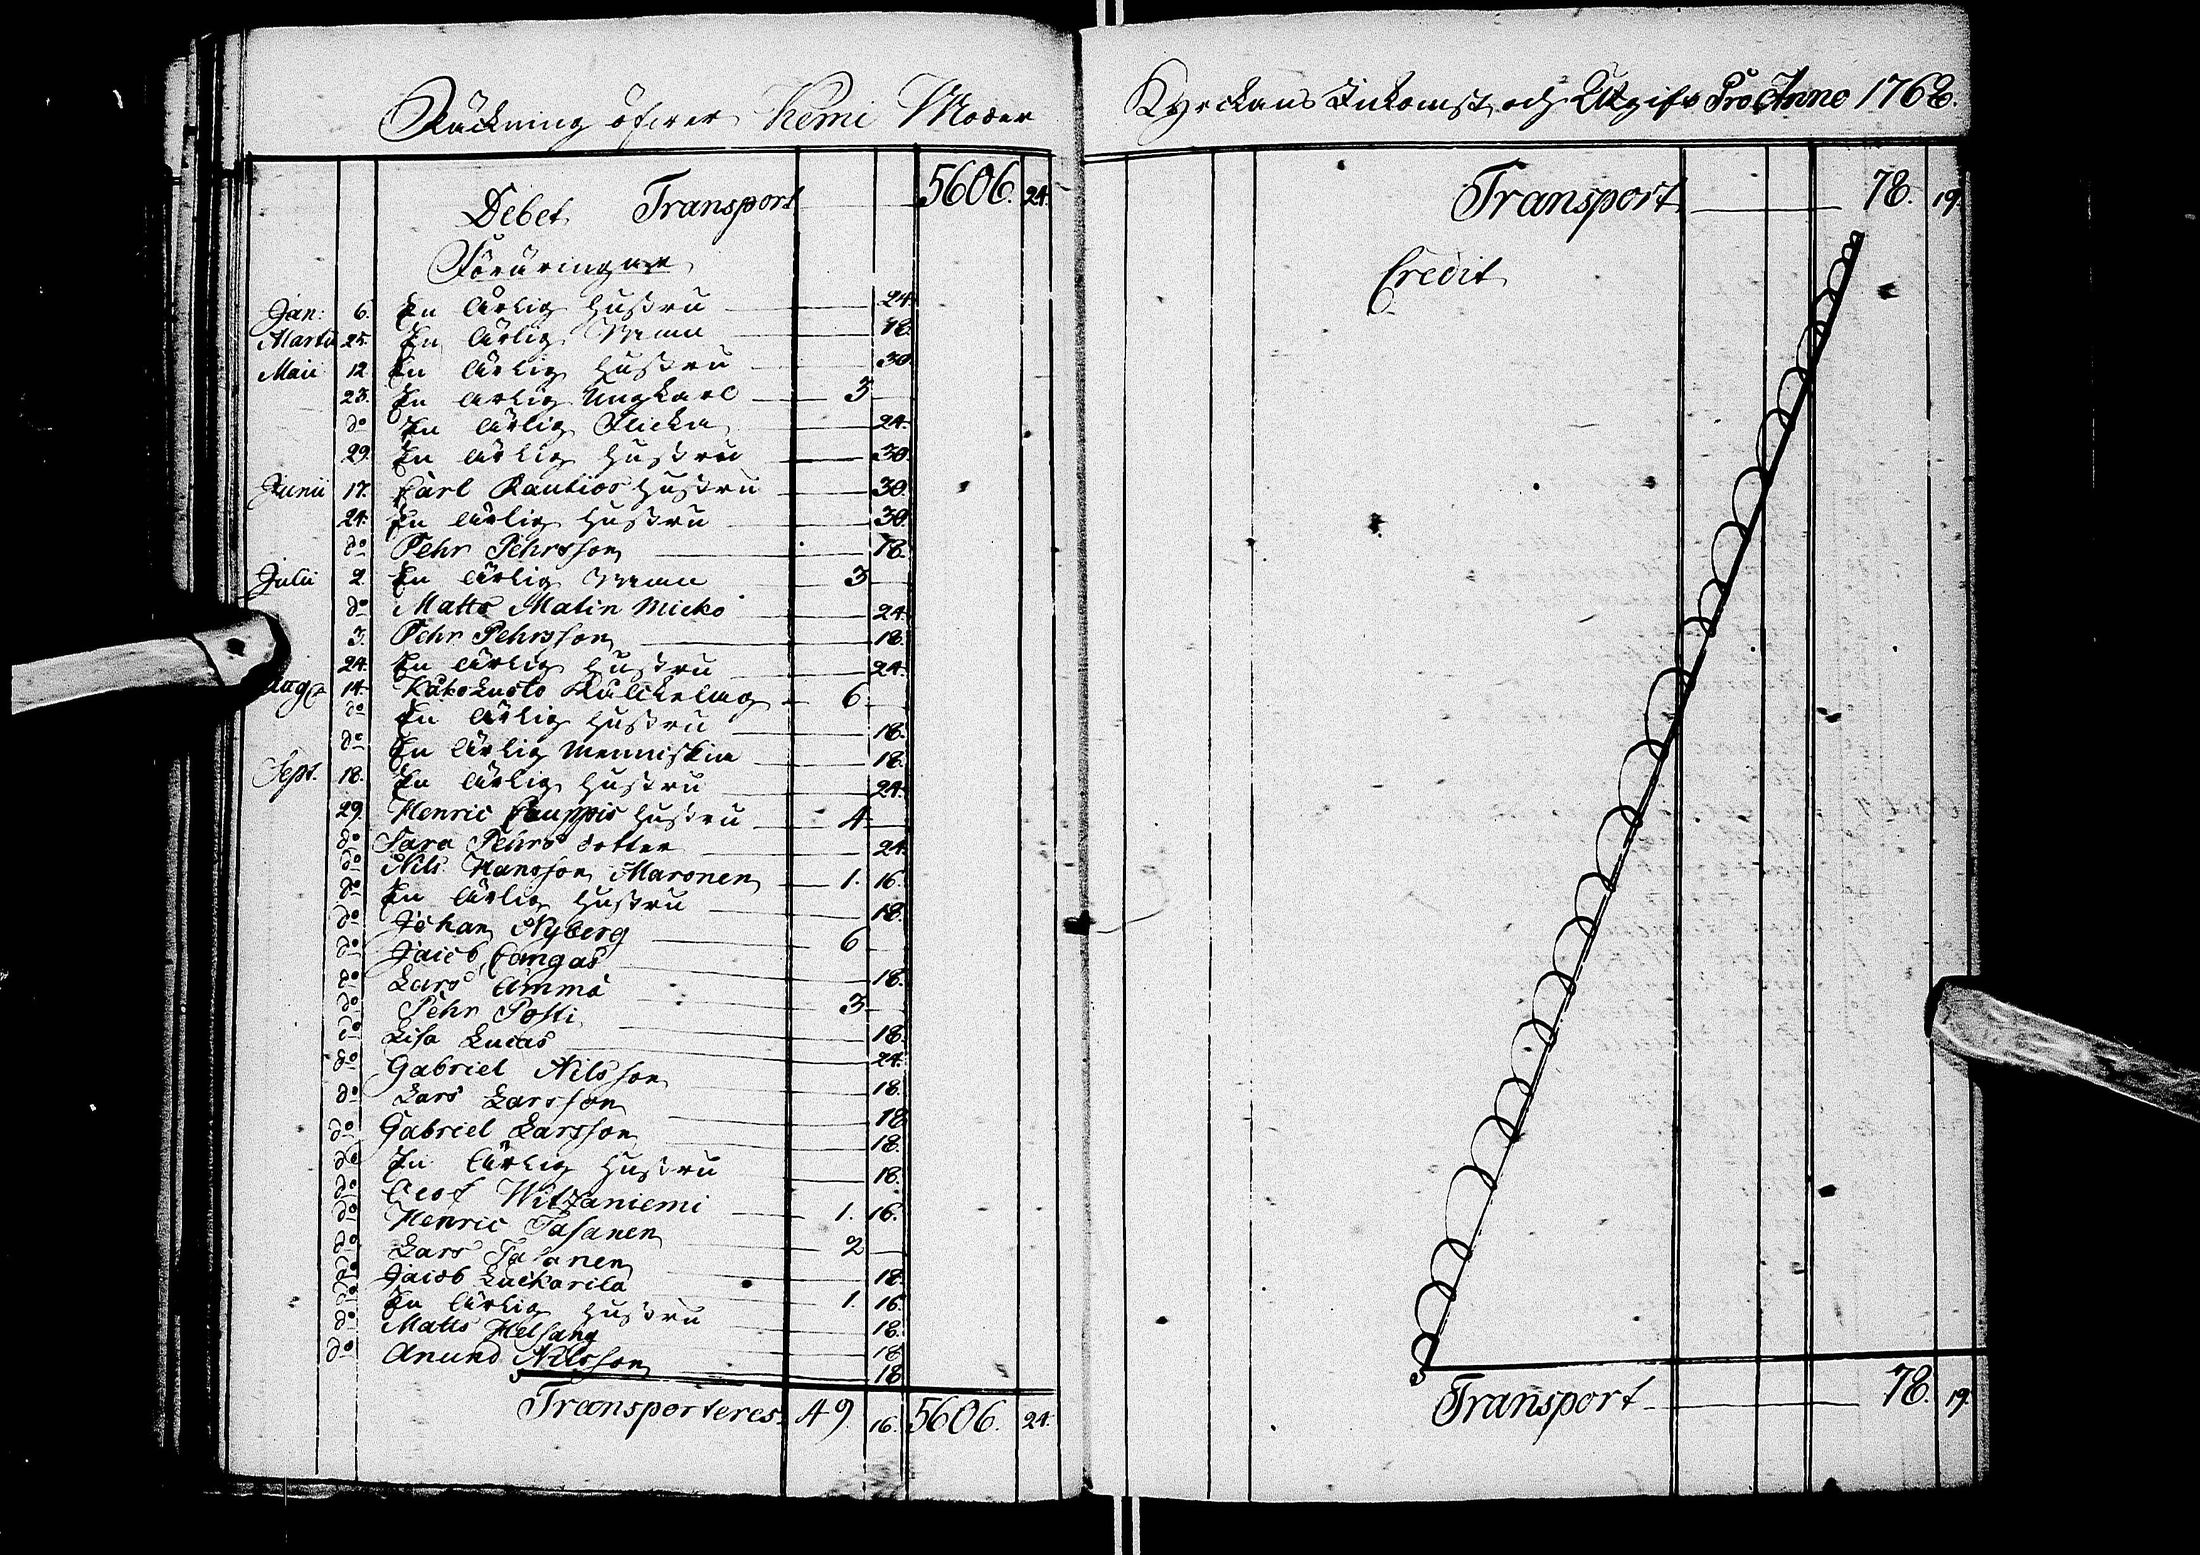 Räckning öfwer Kemi Moder
Debet Transport 5606. 24.
Föräringar
Jan: 6. En ärlig Hustru 24.
Martii 25. En ärlig Man 18.
Maii 12 En ärlig Hustru 30.
23. En ärlig Ungkarl 3
do En ärlig Flicka 24.
29. En ärlig Hustru 30.
Junii 17. Carl Rautios Hustru 30.
24. En ärlig Hustru 30.
do Pehr Pehrsson 18.
Julii 2. En ärlig Man 3
do Matts Matin Micko 24.
3. Pehr Pehrsson 18.
24. En ärlig Hustru 24.
Aug 14. 6
do En ärlig Hustru 18.
do En ärlig Menniskia 18.
Sept. 18. En ärlig Hustru 24.
29. Henric Hustru 4
do Sara Pehrs dotter 24.
do Nils Hansson Maronen 1. 16.
do En ärlig Hustru 18.
do Johan Nyberg 6
do Jacob Cangas 18.
do Lars Ämmä 3
do Pehr Posti 18.
do Lisa Lucas 24.
do Gabriel Nilsson 18.
do Lars Larsson 18
do Gabriel Larsson 18.
do En ärlig Hustru 18.
do Olof Witzaniemi 1. 16.
do Henric Tasanen 2
do Lars Tasanen 18.
do Jacob Luckarila 1. 16.
do En ärlig Hustru 18.
do Matts Helsang 18
do Anund Nilsson 18
Transporteres 49. 16. 5606. 24.
Kyrckans Inkomst och Utgift Pro Anno 1768.
Transport 78. 19.
Credit
Transport 78. 19.